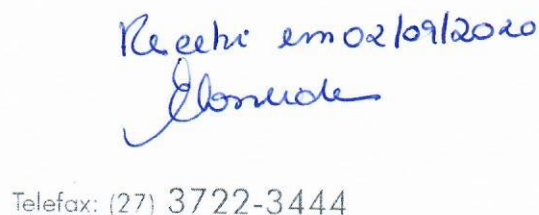 Recebi em 02/09/2020
Telefax: (27) 3722-3444